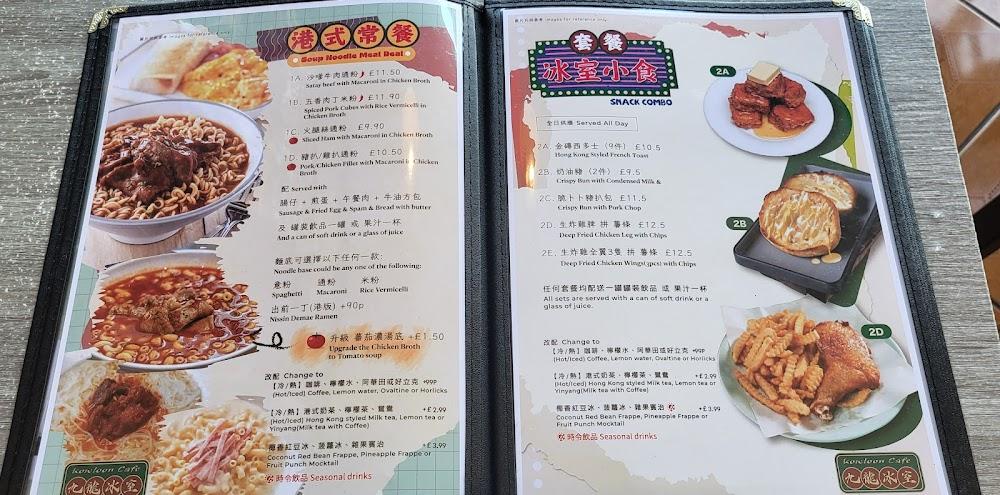 圖片只供參考 images for reference only
港式常餐
Soup Noodle Meal Deal
1A. 沙嗲牛肉通粉 £11.50
Satay beef with Macaroni in Chicken Broth
1B. 五香肉丁米粉 £11.90
Spiced Pork Cubes with Rice Vermicelli in
Chicken Broth
1C. 火腿絲通粉 £9.90
Sliced Ham with Macaroni in Chicken Broth
1D. 豬扒/雞扒通粉 £10.50
Pork/Chicken Fillet with Macaroni in Chicken
Broth
配 Served with
腸仔 + 煎蛋 + 午餐肉 + 牛油方包
Sausage & Fried Egg & Spam & Bread with butter
及 罐裝飲品一罐 或 果汁一杯
And a can of soft drink or a glass of juice
麵底可選擇以下任何一款:
Noodle base could be any one of the following:
意粉 通粉 米粉
Spaghetti Macaroni Rice Vermicelli
出前一丁(港版) +90p
Nissin Demae Ramen
升級 蕃茄濃湯底 +£1.50
Upgrade the Chicken Broth
to Tomato soup
改配 Change to
【冷/熱】咖啡、檸檬水、阿華田或好立克 +99P
(Hot/Iced) Coffee, Lemon water, Ovaltine or Horlicks
【冷/熱】港式奶茶、檸檬茶、鴛鴦 +£2.99
(Hot/Iced) Hong Kong styled Milk tea, Lemon tea or
Yinyang(Milk tea with Coffee)
椰香紅豆冰、菠蘿冰、雜果賓治 +£3.99
Coconut Red Bean Frappe, Pineapple Frappe or
Fruit Punch Mocktail
時令飲品 Seasonal drinks
Kowloon Cafe
九龍冰室
圖片只供參考 images for reference only
套餐
冰室小食
SNACK COMBO
全日供應 Served All Day
2A. 金磚西多士 (9件) £10.5
Hong Kong Styled French Toast
2B. 奶油豬 (2件) £9.5
Crispy Bun with Condensed Milk &
2C. 脆卜卜豬扒包 £11.5
Crispy Bun with Pork Chop
2D. 生炸雞髀 拼 薯條 £12.5
Deep Fried Chicken Leg with Chips
2E. 生炸雞全翼3隻 拼 薯條 £12.5
Deep Fried Chicken Wings(3pcs) with Chips
任何套餐均配送一罐罐裝飲品 或 果汁一杯
All sets are served with a can of soft drink or a
glass of juice.
改配 Change to
【冷/熱】咖啡、檸檬水、阿華田或好立克 +99P
(Hot/Iced) Coffee, Lemon water, Ovaltine or Horlicks
【冷/熱】港式奶茶、檸檬茶、鴛鴦 +£2.99
(Hot/Iced) Hong Kong styled Milk tea, Lemon tea or
Yinyang(Milk tea with Coffee)
椰香紅豆冰、菠蘿冰、雜果賓治 +£3.99
Coconut Red Bean Frappe, Pineapple Frappe or
Fruit Punch Mocktail
時令飲品 Seasonal drinks
2A
2B
2D
Kowloon Cafe
九龍冰室